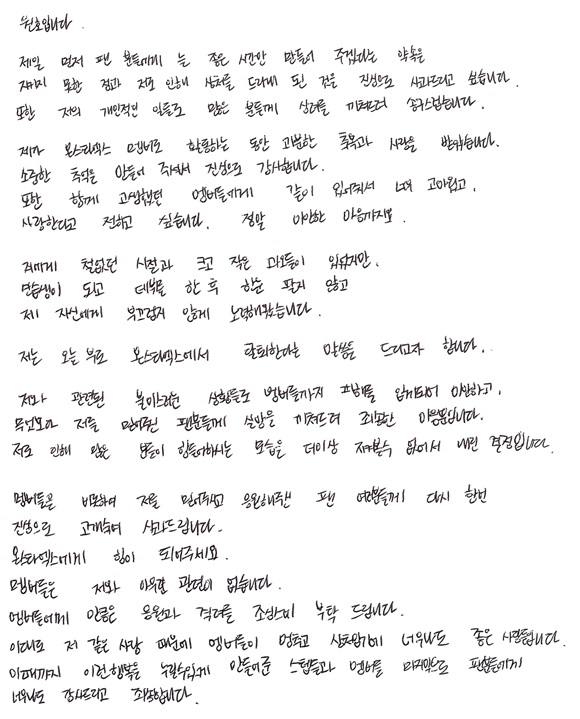 원호입니다.
제일 먼저 팬 분들에게 늘 좋은 시간만 만들어 주겠다는 약속을
지키지 못한 점과 저로 인해 상처를 드리게 된 것을 진심으로 사과드리고 싶습니다.
또한 저의 개인적인 일들로 많은 분들께 심려를 끼쳐드려 송구스럽습니다.
제가 몬스타엑스 멤버로 활동하는 동안 과분한 축복과 사랑을 받았습니다.
소중한 추억을 만들어 주셔서 진심으로 감사합니다.
또한 함께 고생했던 멤버들에게 같이 있어줘서 너무 고마웠고,
사랑한다고 전하고 싶습니다. 정말 미안한 마음까지요.
저에게 철없던 시절과 크고 작은 과오들이 있었지만,
연습생이 되고 데뷔를 한 후 한눈 팔지 않고
제 자신에게 부끄럽지 않게 노력해왔습니다.
저는 오늘 부로 몬스타엑스에서 탈퇴한다는 말씀을 드리고자 합니다.
저와 관련된 불미스러운 상황들로 멤버들까지 피해를 입게되어 미안하고,
무엇보다 저를 믿어주신 팬분들께 실망을 끼쳐드려 죄송한 마음뿐입니다.
저로 인해 많은 분들이 힘들어하시는 모습을 더이상 지켜볼수 없어서 내린 결정입니다.
멤버들을 비롯하여 저를 믿어주시고 응원해주신 팬 여러분들께 다시 한번
진심으로 고개숙여 사과드립니다.
몬스타엑스에게 힘이 되어주세요.
멤버들은 저와 아무런 관련이 없습니다.
멤버들에게 만큼은 응원과 격려를 조심스레 부탁 드립니다.
이대로 저 같은 사람 때문에 멤버들이 멈추고 상처받기에 너무나도 좋은 사람들입니다.
이때까지 이런행복을 누릴수있게 만들어준 스텝들과 멤버들 마지막으로 팬분들에게
너무나도 감사드리고 죄송합니다.